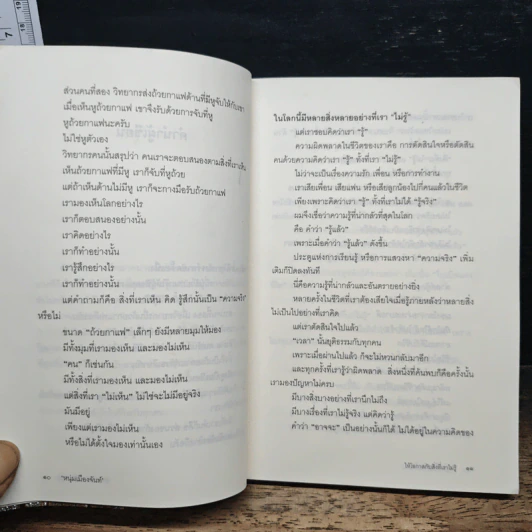 ส่วนคนที่สอง วิทยากรส่งถ้วยกาแฟด้านที่มีหูจับให้กับเขา
เมื่อเห็นหูถ้วยกาแฟ เขาจึงรับด้วยการจับที่หู
หูถ้วยกาแฟนะครับ
ไม่ใช่หูตัวเอง
วิทยากรคนนั้นสรุปว่า คนเราจะตอบสนองตามสิ่งที่เราเห็น
เห็นถ้วยกาแฟที่มีหู เราก็จับที่หูถ้วย
แต่ถ้าเห็นด้านไม่มีหู เราก็จะกางมือรับถ้วยกาแฟ
เรามองเห็นโลกอย่างไร
เราก็ตอบสนองอย่างนั้น
เราคิดอย่างไร
เราก็ทำอย่างนั้น
เรารู้สึกอย่างไร
เราก็ทำอย่างนั้น
แต่คำถามก็คือ สิ่งที่เราเห็น คิด รู้สึกนั้นเป็น "ความจริง"
หรือไม่
ขนาด "ถ้วยกาแฟ" เล็กๆ ยังมีหลายมุมให้มอง
มีทั้งมุมที่เรามองเห็น และมองไม่เห็น
"คน" ก็เช่นกัน
มีทั้งสิ่งที่เรามองเห็น และมองไม่เห็น
แต่สิ่งที่เรา "ไม่เห็น" ไม่ใช่จะไม่มีอยู่จริง
มันมีอยู่
เพียงแต่เรามองไม่เห็น
หรือไม่ได้ตั้งใจมองเท่านั้นเอง
๑๐ "หนุ่มเมืองจันท์"
ในโลกนี้มีหลายสิ่งหลายอย่างที่เรา "ไม่รู้"
แต่เราชอบคิดว่าเรา "รู้"
ความผิดพลาดในชีวิตของเราคือ การตัดสินใจหรือตัดสิน
คนด้วยความคิดว่าเรา "รู้" ทั้งที่เรา "ไม่รู้"
ไม่ว่าจะเป็นเรื่องความรัก เพื่อน หรือการทำงาน
เราเสียเพื่อน เสียแฟน หรือเสียลูกน้องไปกี่คนแล้วในชีวิต
เพียงเพราะคิดว่าเรา "รู้" ทั้งที่เราไม่ได้ "รู้จริง"
ผมจึงเชื่อว่าความรู้ที่น่ากลัวที่สุดในโลก
คือ คำว่า "รู้แล้ว"
เพราะเมื่อคำว่า "รู้แล้ว" ดังขึ้น
ประตูแห่งการเรียนรู้ หรือการแสวงหา "ความจริง" เพิ่ม
เติมก็ปิดลงทันที
นี่คือความรู้ที่น่ากลัวและอันตรายอย่างยิ่ง
หลายครั้งในชีวิตที่เราต้องเสียใจเมื่อรู้ภายหลังว่าหลายสิ่ง
ไม่เป็นไปอย่างที่เราคิด
แต่เราตัดสินใจไปแล้ว
"เวลา" นั้นยุติธรรมกับทุกคน
เพราะเมื่อผ่านไปแล้ว ก็จะไม่หวนกลับมาอีก
และทุกครั้งที่เรารู้ว่าผิดพลาด สิ่งหนึ่งที่ค้นพบก็คือครั้งนั้น
เรามองปัญหาไม่ครบ
มีบางสิ่งบางอย่างที่เรานึกไม่ถึง
มีบางเรื่องที่เราไม่รู้จริง แต่คิดว่ารู้
คำว่า "อาจจะ" เป็นอย่างนั้นก็ได้ ไม่ได้อยู่ในความคิดของ
ให้โอกาสกับสิ่งที่เราไม่รู้ ๑๑